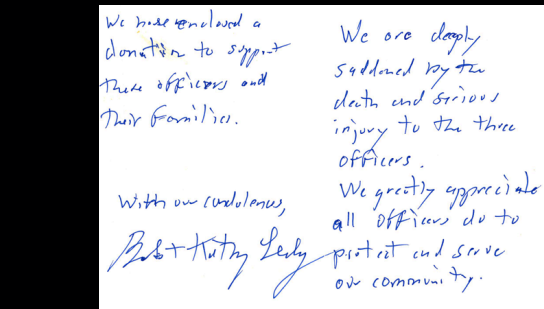 We have enclosed a
donation to support
these officers and
their families.
With our condolences,
Bob + Kathy
We are deeply
saddened by the
death and serious
injury to the three
officers.
We greatly appreciate
all officers do to
protect and serve
our community.